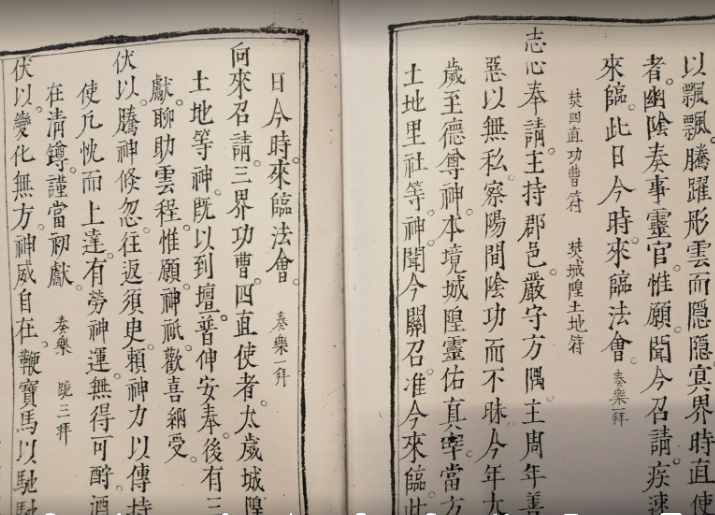 以飄飄騰躍形雲而隱隱冥界時直使
者。幽陰奏事靈官。惟願聞今召請。疾速
來臨。此日今時。來臨法會。奏樂一拜
焚四直功曹符 焚城隍土地符
志心奉請。主持郡邑。嚴守方隅。主周年善
惡以無私。察陽間陰功而不昧。今年太
歲至德尊神。本境城隍靈佑真宰。當方
土地里社等神。聞今關召。准今來臨。此
日今時。來臨法會。 奏樂一拜
向來召請。三界功曹。四直使者。太歲城隍
土地等神。既以到壇。普伸安奉。後有三
獻。聊助雲程。惟願神祇。歡喜納受。
伏以。騰神倏忽。往返須臾。賴神力以傳持
使凡忱而上達。有勞神運。無得可酧。酒
在清罇。謹當初獻。 奏樂 號三拜
伏以。變化無方。神威自在。鞭寶馬以馳